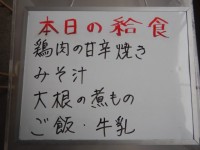 本日の給食
鶏肉の甘辛焼き
みそ汁
大根の煮もの
ご飯・牛乳